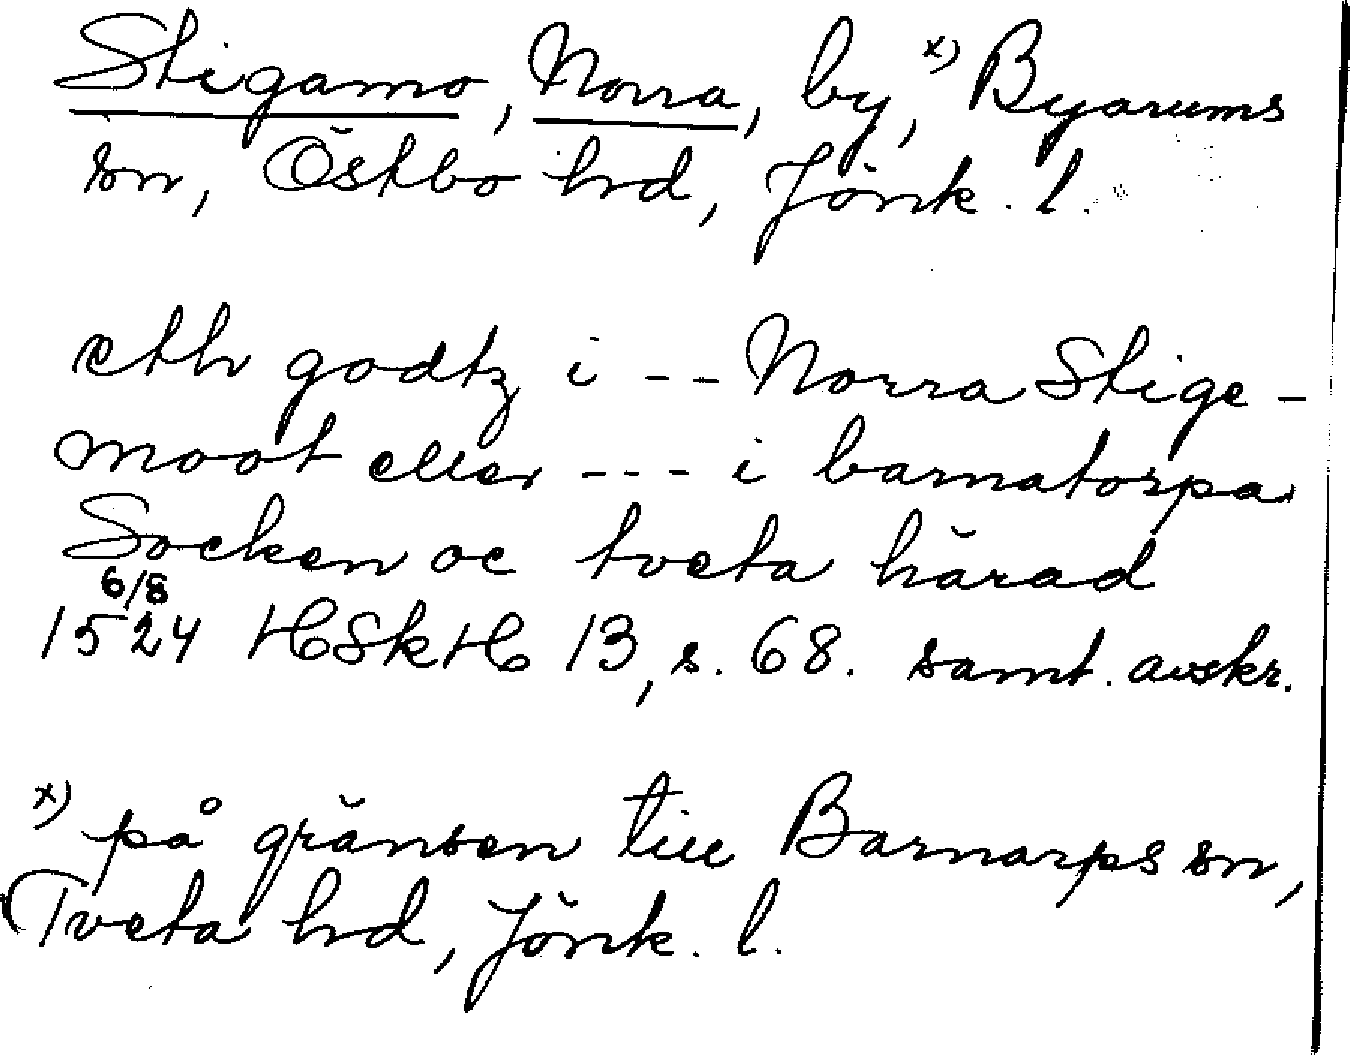 Stigamo, Norra, by, x) Byarums
sn, Östbo hrd, Jönk. l.
eth godtz i -- Norra Stige-
moot eller --- i barnatorpa
Socken oc tveta härad
6/8
1524 HSkH 13, s. 68. samt. avskr.
x) på gränsen till Barnarps sn,
Tveta hrd, Jönk. l.